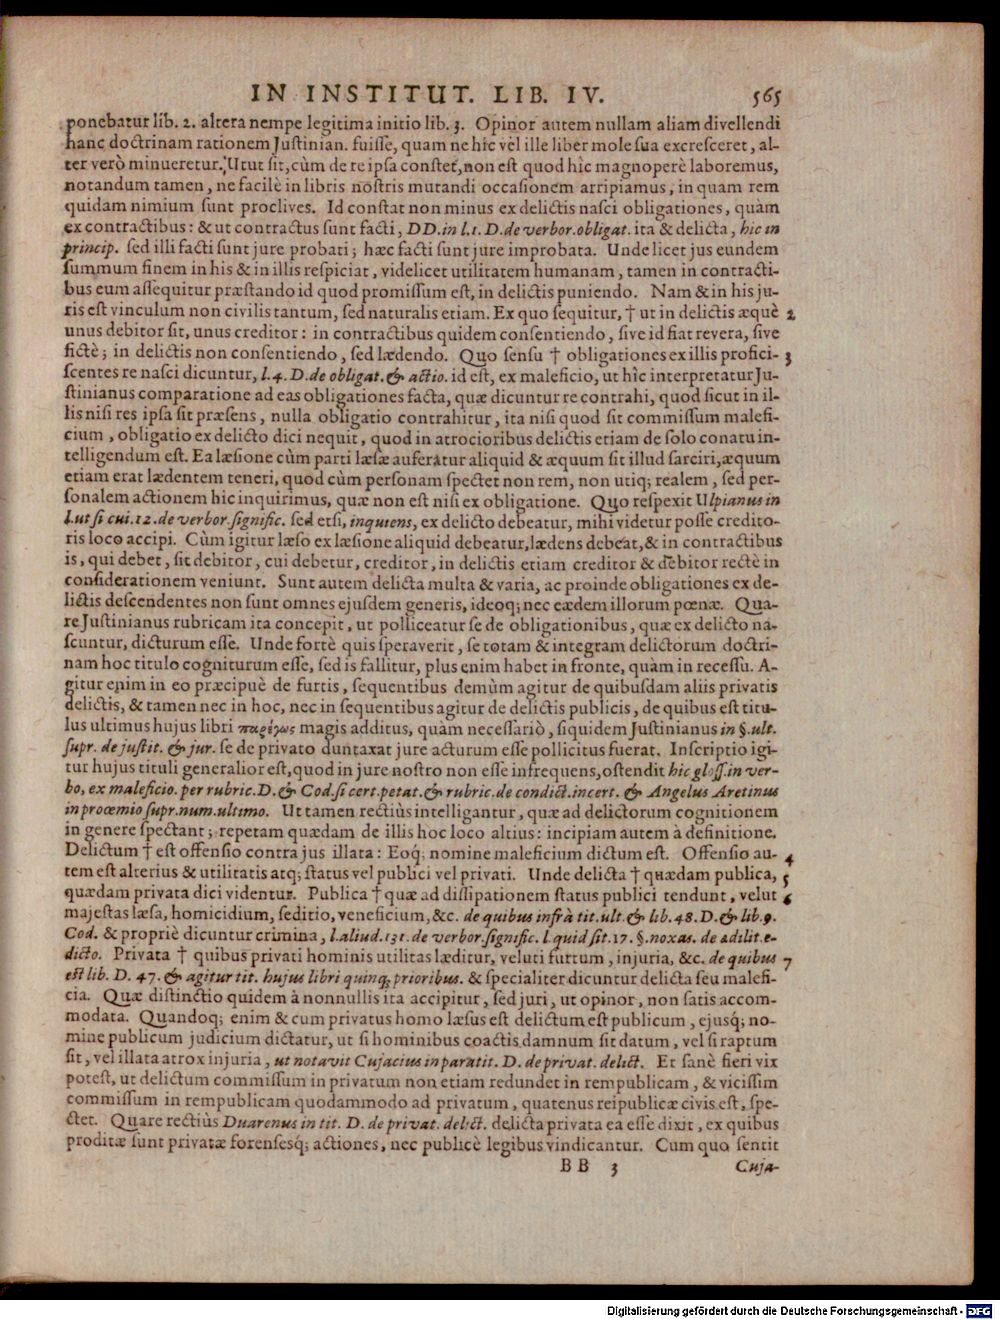 IN INSTITUT. LIB. IV. 565
ponebatur lib. 2. altera nempe legitima initio lib. 3. Opinor autem nullam aliam divellendi
hanc doctrinam rationem Justinian. fuisse, quam ne hic vel ille liber mole sua excresceret, al-
ter verò minueretur. Utut sit, cùm de re ipsa constet, non est quod hîc magnoperè laboremus,
notandum tamen, ne facilè in libris nostris mutandi occasionem arripiamus, in quam rem
quidam nimium sunt proclives. Id constat non minus ex delictis nasci obligationes, quàm
ex contractibus: & ut contractus sunt facti, DD. in l. 1. D. de verbor. obligat. ita & delicta, hic in
princip. sed illi facti sunt jure probati; hæc facti sunt jure improbata. Unde licet jus eundem
summum finem in his & in illis respiciat, videlicet utilitatem humanam, tamen in contracti-
bus eum assequitur præstando id quod promissum est, in delictis puniendo. Nam & in his ju-
ris est vinculum non civilis tantum, sed naturalis etiam. Ex quo sequitur, † ut in delictis æquè 2
unus debitor sit, unus creditor: in contractibus quidem consentiendo, sive id fiat revera, sive
fictè; in delictis non consentiendo, sed lædendo. Quo sensu † obligationes ex illis profici- 3
scentes re nasci dicuntur, l. 4. D. de obligat. & actio. id est, ex maleficio, ut hîc interpretatur Ju-
stinianus comparatione ad eas obligationes facta, quæ dicuntur re contrahi, quod sicut in il-
lis nisi res ipsa sit præsens, nulla obligatio contrahitur, ita nisi quod sit commissum malefi-
cium, obligatio ex delicto dici nequit, quod in atrocioribus delictis etiam de solo conatu in-
telligendum est. Ea læsione cùm parti læsæ auferatur aliquid & æquum sit illud sarciri, æquum
etiam erat lædentem teneri, quod cùm personam spectet non rem, non utiq; realem, sed per-
sonalem actionem hic inquirimus, quæ non est nisi ex obligatione. Quo respexit Ulpianus in
l. ut si cui. 12. de verbor. signific. sed etsi, inquiens, ex delicto debeatur, mihi videtur posse credito-
ris loco accipi. Cùm igitur læso ex læsione aliquid debeatur, lædens debeat, & in contractibus
is, qui debet, sit debitor, cui debetur, creditor, in delictis etiam creditor & debitor rectè in
considerationem veniunt. Sunt autem delicta multa & varia, ac proinde obligationes ex de-
lictis descendentes non sunt omnes ejusdem generis, ideoq; nec eædem illorum pœnæ. Qua-
re Justinianus rubricam ita concepit, ut polliceatur se de obligationibus, quæ ex delicto na-
scuntur, dicturum esse. Unde fortè quis speraverit, se totam & integram delictorum doctri-
nam hoc titulo cogniturum esse, sed is fallitur, plus enim habet in fronte, quàm in recessu. A-
gitur enim in eo præcipuè de furtis, sequentibus demùm agitur de quibusdam aliis privatis
delictis, & tamen nec in hoc, nec in sequentibus agitur de delictis publicis, de quibus est titu-
lus ultimus hujus libri παρέργως magis additus, quàm necessariò, siquidem Justinianus in §. ult.
supr. de justit. & jur. se de privato duntaxat jure acturum esse pollicitus fuerat. Inscriptio igi-
tur hujus tituli generalior est, quod in jure nostro non esse infrequens, ostendit hic gloss. in ver-
bo, ex maleficio. per rubric. D. & Cod. si cert. petat. & rubric. de condict. incert. & Angelus Aretinus
in proœmio supr. num. ultimo. Ut tamen rectiùs intelligantur, quæ ad delictorum cognitionem
in genere spectant; repetam quædam de illis hoc loco altius: incipiam autem à definitione.
Delictum † est offensio contra jus illata: Eoq́; nomine maleficium dictum est. Offensio au- 4
tem est alterius & utilitatis atq; status vel publici vel privati. Unde delicta † quædam publica, 5
quædam privata dici videntur. Publica † quæ ad dissipationem status publici tendunt, velut 6
majestas læsa, homicidium, seditio, veneficium, &c. de quibus infrà tit. ult. & lib. 48. D. & lib. 9.
Cod. & propriè dicuntur crimina, l. aliud. 131. de verbor. signific. l. quid sit. 17. §. noxas. de ædilit. e-
dicto. Privata † quibus privati hominis utilitas læditur, veluti furtum, injuria, &c. de quibus 7
est lib. D. 47. & agitur tit. hujus libri quinq; prioribus. & specialiter dicuntur delicta seu malefi-
cia. Quæ distinctio quidem à nonnullis ita accipitur, sed juri, ut opinor, non satis accom-
modata. Quandoq; enim & cum privatus homo læsus est delictum est publicum, ejusq́; no-
mine publicum judicium dictatur, ut si hominibus coactis damnum sit datum, vel si raptum
sit, vel illata atrox injuria, ut notavit Cujacius in paratit. D. de privat. delict. Et sanè fieri vix
potest, ut delictum commissum in privatum non etiam redundet in rempublicam, & vicissim
commissum in rempublicam quodammodo ad privatum, quatenus reipublicæ civis est, spe-
ctet. Quare rectiùs Duarenus in tit. D. de privat. delict. delicta privata ea esse dixit, ex quibus
proditæ sunt privatæ forensesq; actiones, nec publicè legibus vindicantur. Cum quo sentit
BB 3 Cuja-
Digitalisierung gefördert durch die Deutsche Forschungsgemeinschaft - DFG